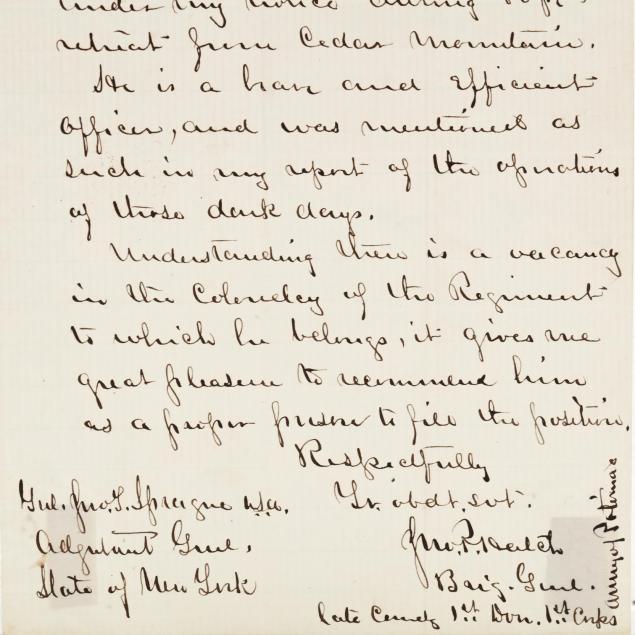 under my notice during Pope's
retreat from Cedar Mountain.
He is a brave and Efficient
officer, and was mentioned as
such in my report of the operations
of those dark days.
Understanding there is a vacancy
in the Colonelcy of the Regiment
to which he belongs, it gives me
great pleasure to recommend him
as a proper person to fill the position.
Respectfully
Yr. obdt. svt.
Jno. P. Hatch
Brig. Genl.
late Comdg 1st Divn. 1st Corps
Army of Potomac
Genl. Jno. T. Sprague USA.
Adjutant Genl.
State of New York